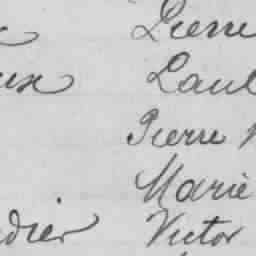 Pierre
eux Paul
Pierre
Marie
dier Victor